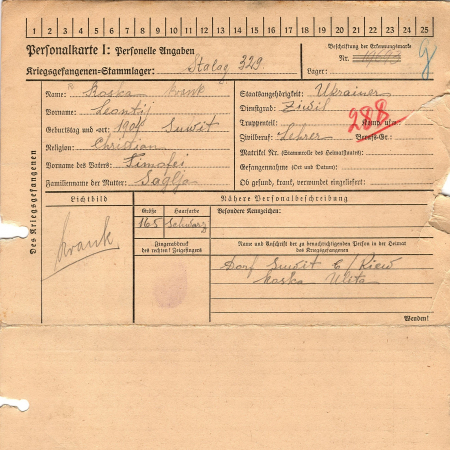 1 2 3 4 5 6 7 8 9 10 11 12 13 14 15 16 17 18 19 20 21 22 23 24 25
Personalkarte I: Personelle Angaben
Kriegsgefangenen-Stammlager: Stalag 329
Beschriftung der Erkennungsmarke
Nr.
Lager:
Des Kriegsgefangenen
Name: krank
Vorname: Leontij
Geburtstag und -ort: 1901 Suwit
Religion: Christian
Vorname des Vaters: Timofei
Familienname der Mutter: Sagljo
Staatsangehörigkeit: Ukrainer
Dienstgrad: Ziwil
Truppenteil: Komp. usw.:
Zivilberuf: Lehrer Berufs-Gr.:
288
Matrikel Nr. (Stammrolle des Heimatstaates):
Gefangennahme (Ort und Datum):
Ob gesund, krank, verwundet eingeliefert:
Lichtbild
krank
Nähere Personalbeschreibung
Größe Haarfarbe Besondere Kennzeichen:
165 Schwarz
Fingerabdruck
des rechten! Zeigefingers
Name und Anschrift der zu benachrichtigenden Person in der Heimat
des Kriegsgefangenen
Dorf Suwit G/Kiew
Ulita
Wenden!